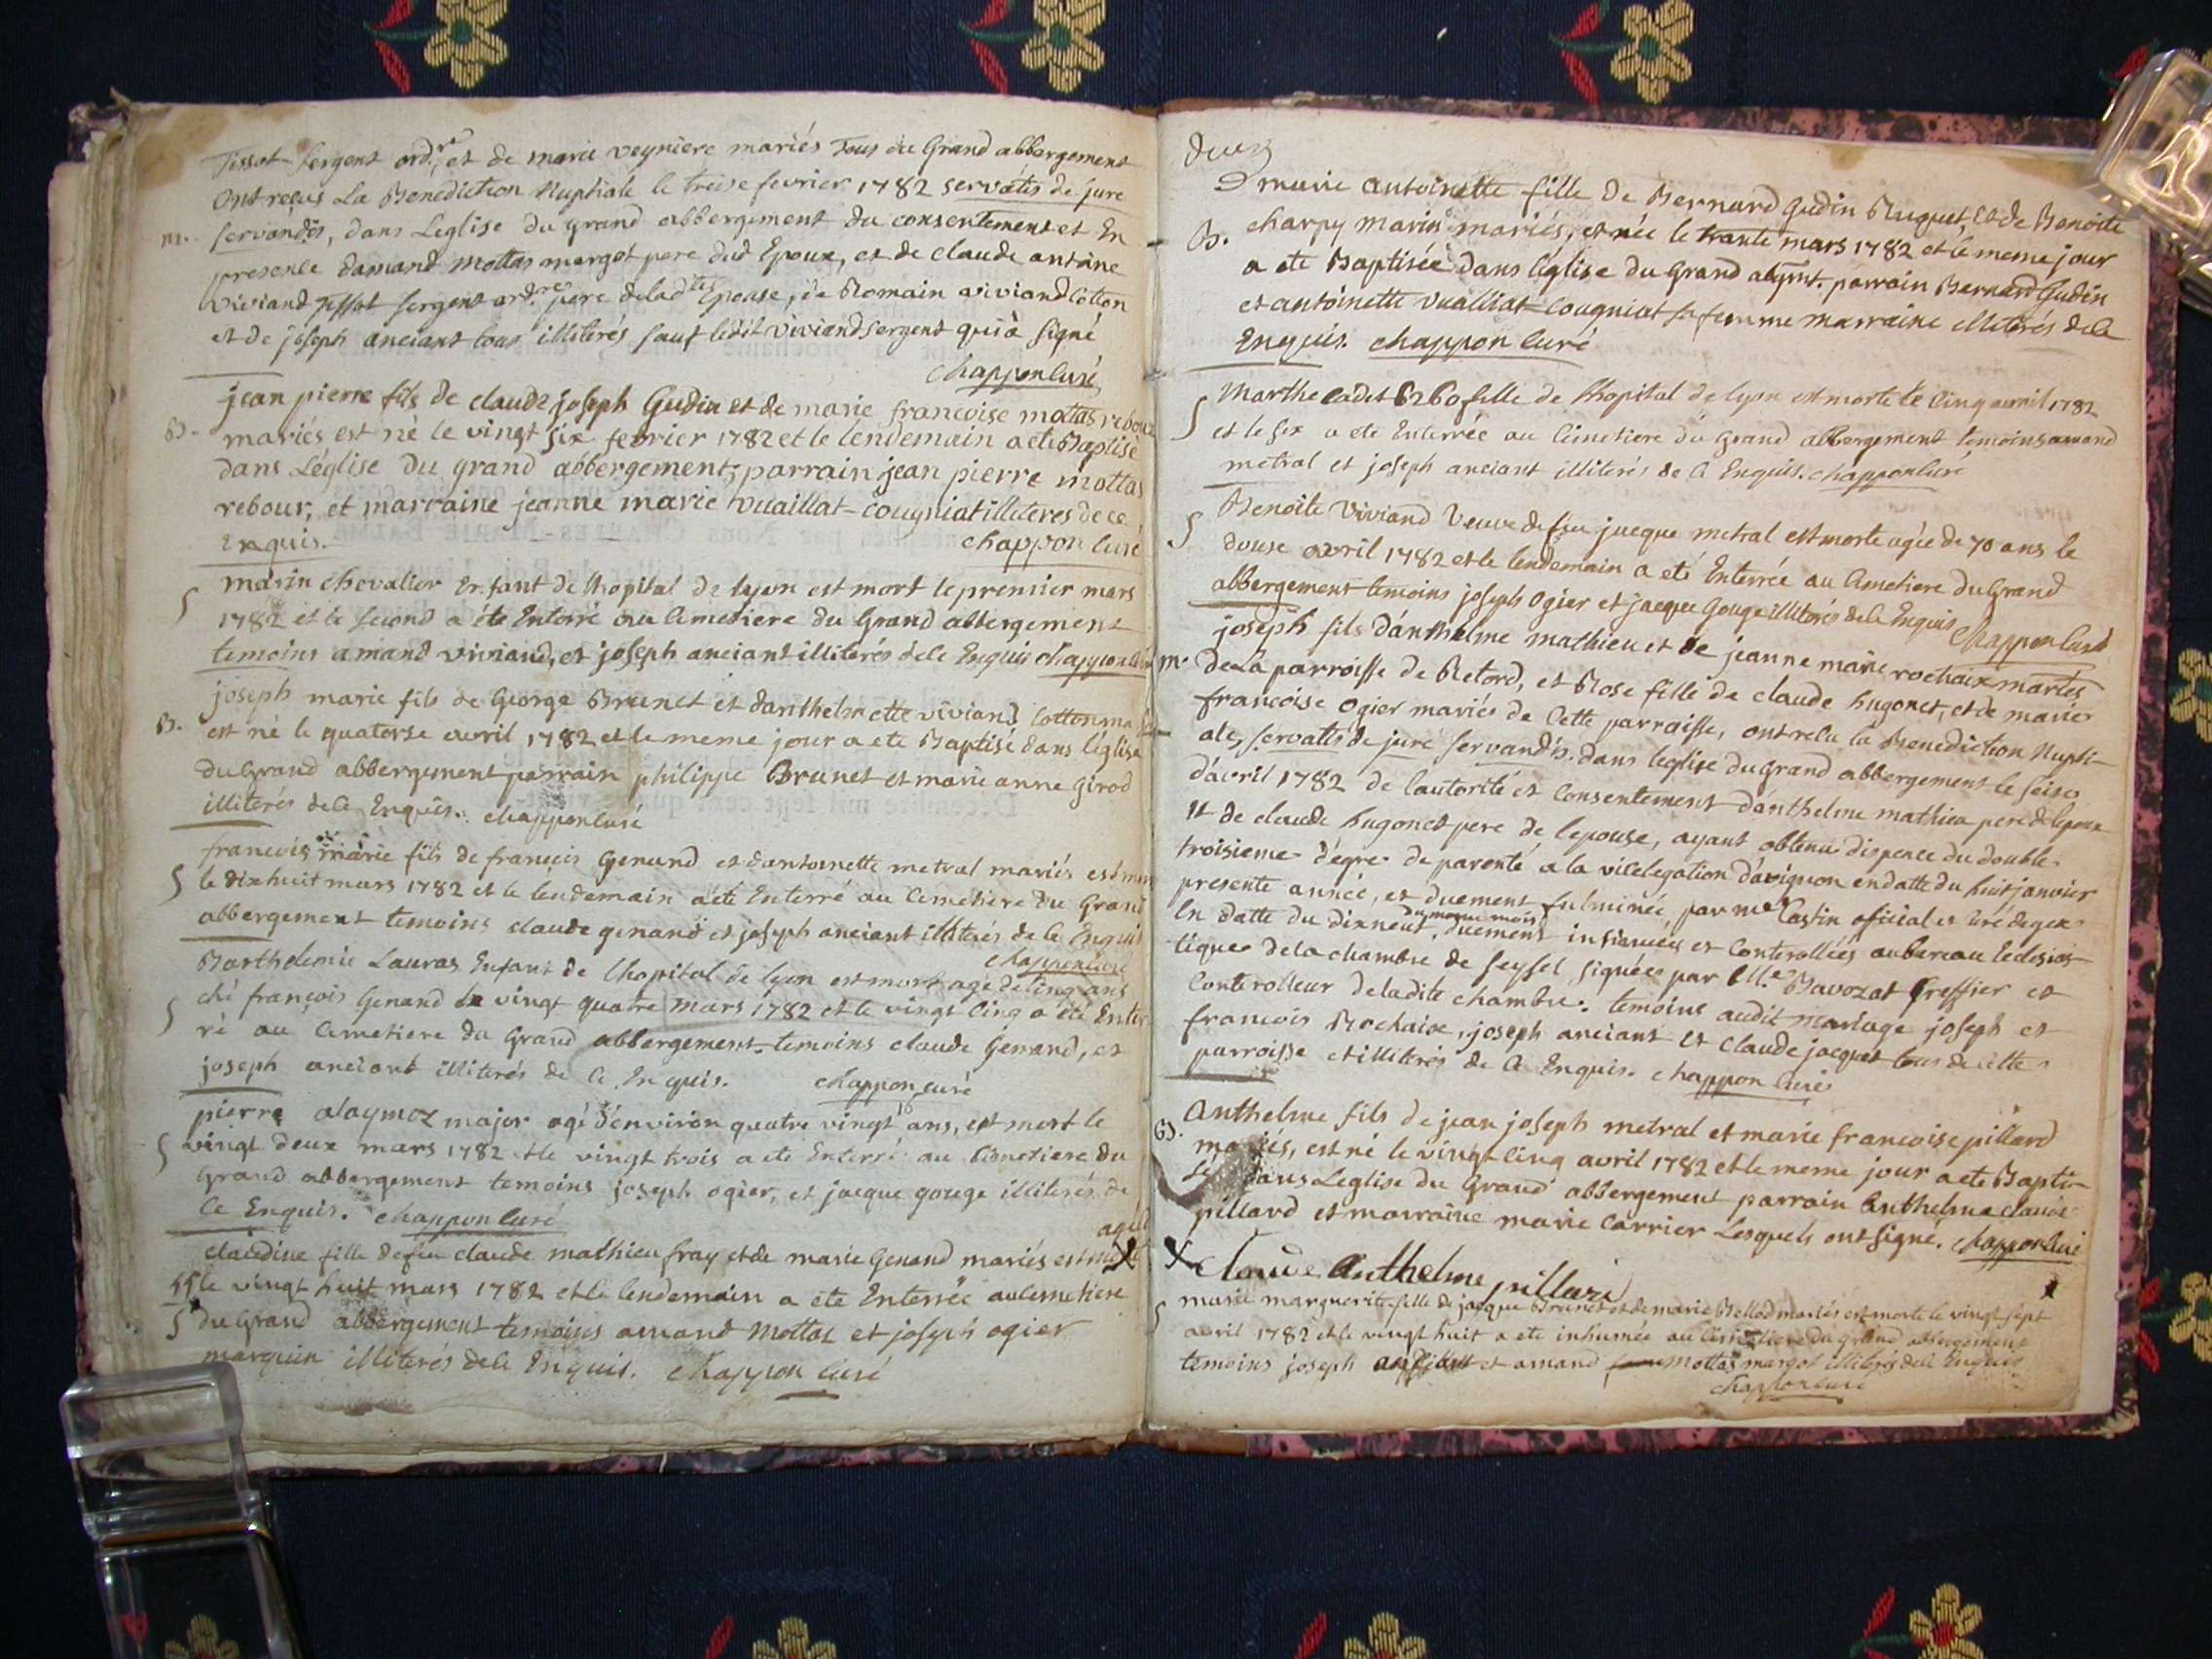 Tissot sergent ord.re et de marie veyniere mariés tous du Grand abbergement
Ont reçus La Benediction Nuptiale le treise fevrier 1782 servatis de jure
servandis, dans Leglise du grand abbergement du consentement et En
m.
presence damand mottas margot pere dud Epoux, et de claude antoine
viviand tissot sergent ord.re pere deladte Epouse, de Romain viviand cotton
et de joseph anciant tous illiterés sauf ledit viviand sergent qui à signé
chappon curé
jean pierre fils de claude joseph Gudin et de marie francoise mottas rebour
B.
mariés est né le vingt six fevrier 1782 et le lendemain a ete Baptisé
dans L'église du grand abbergement, parrain jean pierre mottas
rebour, et marraine jeanne marie vuaillat-cougniat illiteres de ce
Enquis.
chappon curé
marin chevalier Enfant de lhopital de lyon est mort le premier mars
S
1782 et le second a éte Enterré au cimetiere du Grand abbergement
temoins amand viviand, et joseph anciant illiterés de ce Enquis chappon curé
joseph marie fils de George Brunet et danthelmette viviand cotton
B.
est né le quatorse avril 1782 et le meme jour a ete Baptisé dans léglise
du Grand abbergement parrain philippe Brunet et marie anne Girod
illiterés de ce Enquis. chappon curé
francois marie fils de françois Genand et dantoinette metral mariés est mort
S
le dix huit mars 1782 et le lendemain a éte Enterré au cimetiere du Grand
abbergement temoins claude genand et joseph anciant illiterés de ce Enquis
chappon curé
Barthelemie Lauras Enfant de lhopital de lyon est mort age de cinq ans
S
ché françois Genand le vingt quatre mars 1782 et le vingt cinq a été Enter
ré au cimetiere du Grand abbergement temoins claude Genand, et
joseph anciant illiterés de ce Enquis. chappon curé
pierre major agé d'environ quatre vingt ans, est mort le
S
vingt deux mars 1782 et le vingt trois a ete Enterré au cimetiere du
Grand abbergement temoins joseph ogier, et jacque gouge illiterés de
Ce Enquis. chappon curé
claudine fille de feu claude mathieu fray et de marie Genand mariés est
le vingt huit mars 1782 et le lendemain a ete Enterrée au cimetiere
S
du Grand abbergement temoins amand mottas et joseph ogier
marquin illiterés de ce Enquis. chappon curé
deux
marie antoinette fille de Bernard Gudin Buguet, et de Benoite
B.
charpy marin mariés, est née le trante mars 1782 et le meme jour
a ete Baptisée dans l'église du Grand abgmt. parrain Bernard Gudin
et antoinette vualliat-cougniat sa femme marraine illiterés de ce
Enquis. chappon curé
Marthe cadet 6260 fille de lhopital de lyon est morte le cinq avril 1782
S
et le six a ete Enterrée au cimetiere du Grand abbergement temoins amand
metral et joseph anciant illiterés de ce Enquis. chappon curé
Benoite viviand veuve de feu jacque metral est morte agée de 70 ans le
S
douse avril 1782 et le lendemain a eté Enterrée au cimetiere du Grand
abbergement temoins joseph ogier et jacque Gouge illiterés de ce Enquis
chappon curé
joseph fils d'anthelme mathieu et de jeanne marie rochaix mariés
m.
de La parroisse de Retord, et Rose fille de claude hugonet, et de marie
francoise ogier mariés de Cette parroisse, ont reçu la Benediction Nupti-
ale, servatis de jure servandis. dans leglise du Grand abbergement le seise
d'avril 1782 de lautorité et consentement d'anthelme mathieu pere de lepoux
et de claude hugonet pere de lepouse, ayant obtenu dispence du double
troisieme dégre de parenté a la vicelegation d'avignon en datte du huit janvier
presente année, et duement fulminée, par me Castin oficial et curé de gex
du meme mois
En datte du dixneuf, duement insinuées et controllées au bureau Eclesias-
tique de la chambre de seyssel signées par Me. Bavozat Greffier et
controlleur de ladite chambre. temoins audit mariage joseph et
francois Rochaix, joseph anciant et claude jacquet tous de cette
parroisse et illiterés de ce Enquis. chappon curé
Anthelme fils de jean joseph metral et marie francoise pillard
B.
mariés, est né le vingt cinq avril 1782 et le meme jour a ete Bapti-
sé dans Leglise du Grand abbergement parrain Anthelme claude
pillard et marraine marie carrier Lesquels ont signé. chappon curé
Claude Anthelme pillard
marie marguerite fille de jacque Brunet et de marie Bellod mariés est morte le vingt sept
S
avril 1782 et le vingt huit a ete inhumée au cimetiere du Grand abbergement
temoins joseph anciant et amand mottas margot illiterés de ce Enquis
chappon curé